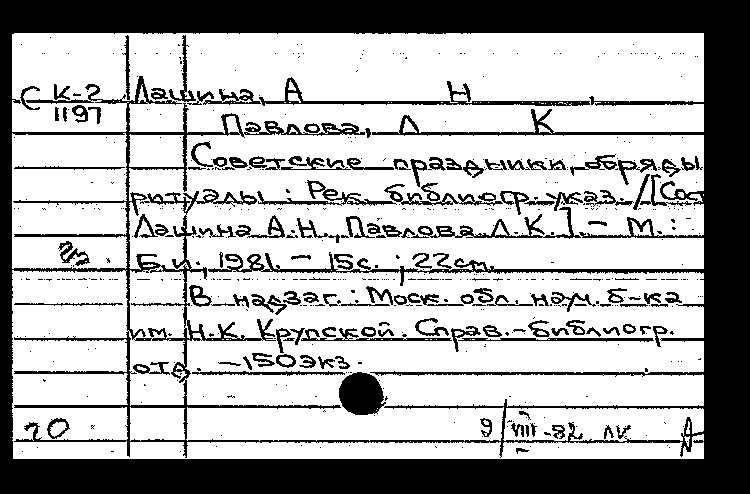 С К-2 Лашина, А Н ,
1197 Павлова, Л К
Советские праздники, обряды
ритуалы : Рек. библиогр. указ. /[Сост
Лашина А.Н., Павлова Л.К.]. - М.:
Б.и., 1981. - 15с. ; 22см.
В надзаг. : Моск. обл. науч. б-ка
им. Н.К. Крупской. Справ.-библиогр.
отд. -150экз.
20 9/VIII-82 ЛК